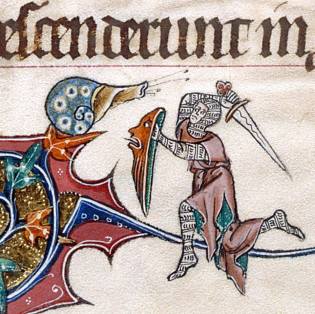 escenderunt in